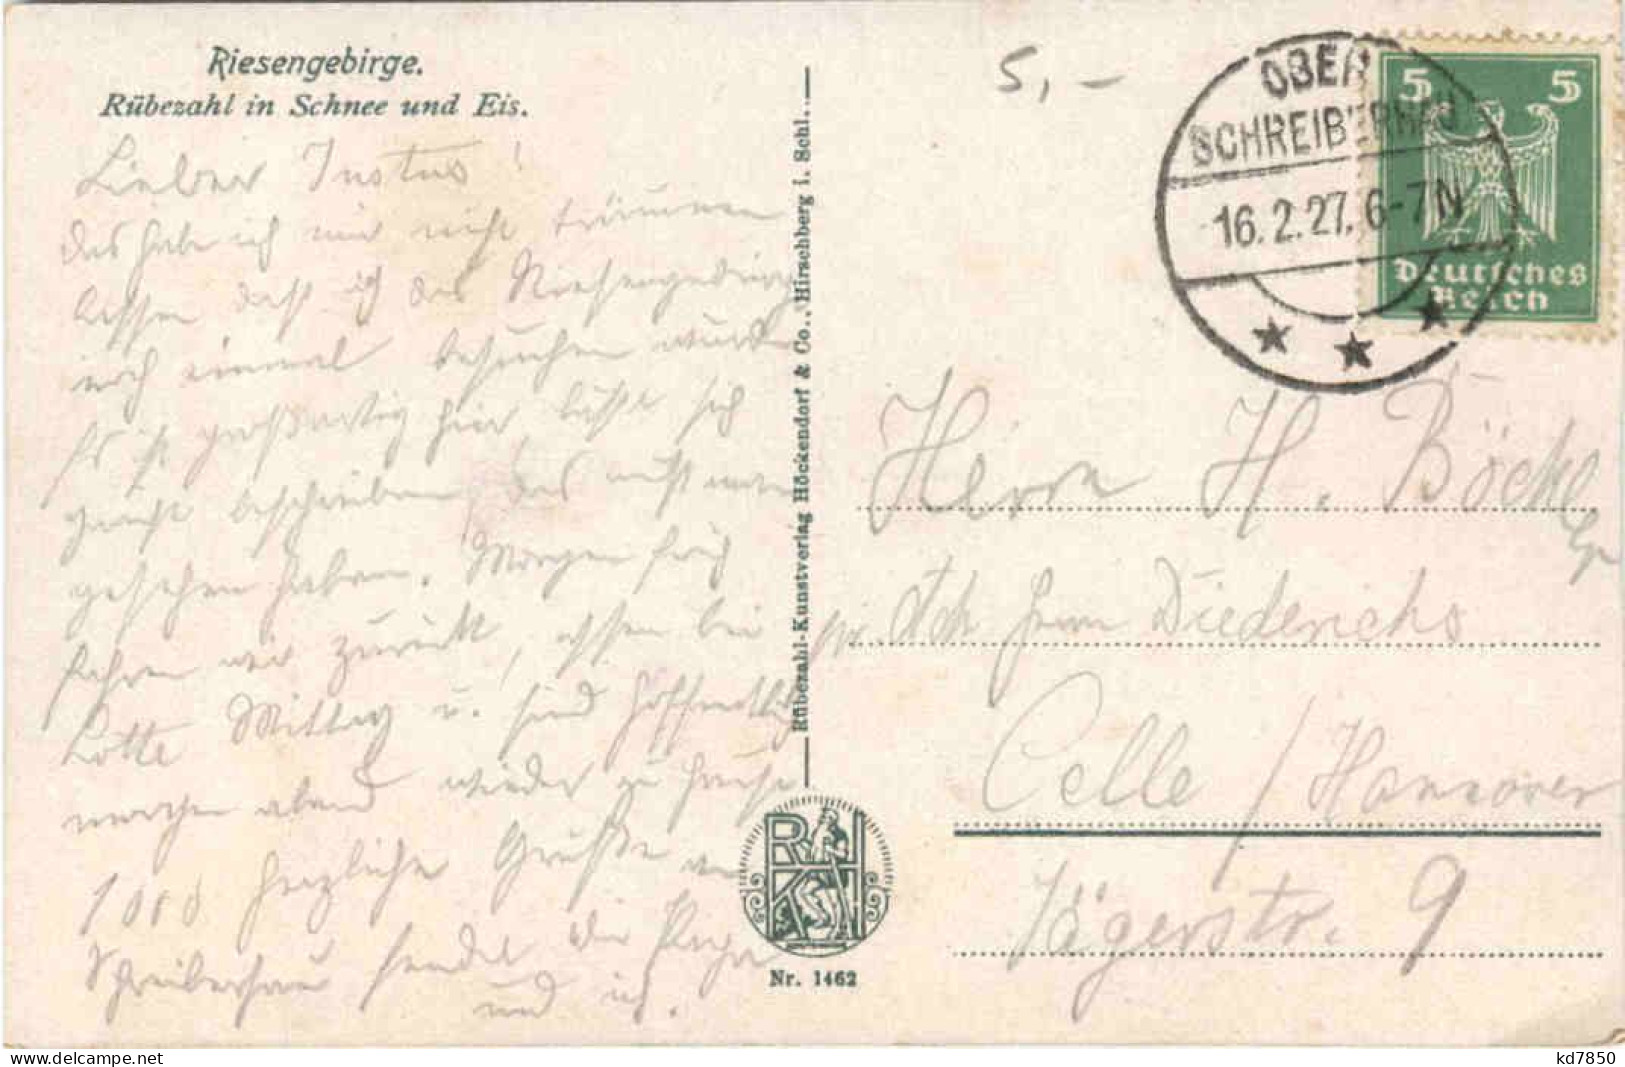 Riesengebirge.
Rübezahl in Schnee und Eis.
Lieber Justus!
das habe ich mir nicht träumen
lassen dass ich das Riesengebirge
noch einmal besuchen würde
Es ist großartig hier, läßt sich
garnicht beschreiben das muß man
gesehen haben. Morgen früh
fahren wir zurück, essen bei
Lotte Mittag u. sind hoffentlich
morgen abend wieder zu Hause
1000 herzliche Grüße aus
Schreiberhau sendet dir Papa
und ich.
Rübezahl-Kunstverlag Höckendorf & Co., Hirschberg i. Schl.
RHK
Nr. 1462
5,-
OBER
SCHREIBERHAU
16.2.27. 6-7N
5 5
Deutsches
Reich
Herrn H. Böckel
Herrn Diederichs
Celle / Hannover
Jägerstr. 9
kd7850
delcampe.net